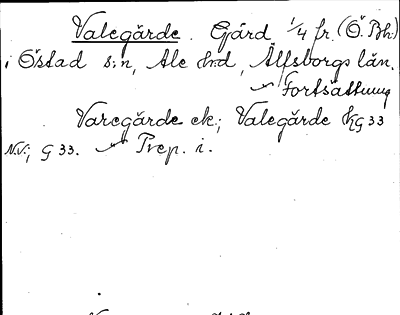 Valegärde. Gärd 1/4 fr. (Ö. Bh.)
i Östad s:n, Ale h:d, Älfsborgs län.
Fortsättning
Varegärde ek.; Valegärde kg 33
N.V; G 33. Prep. i.